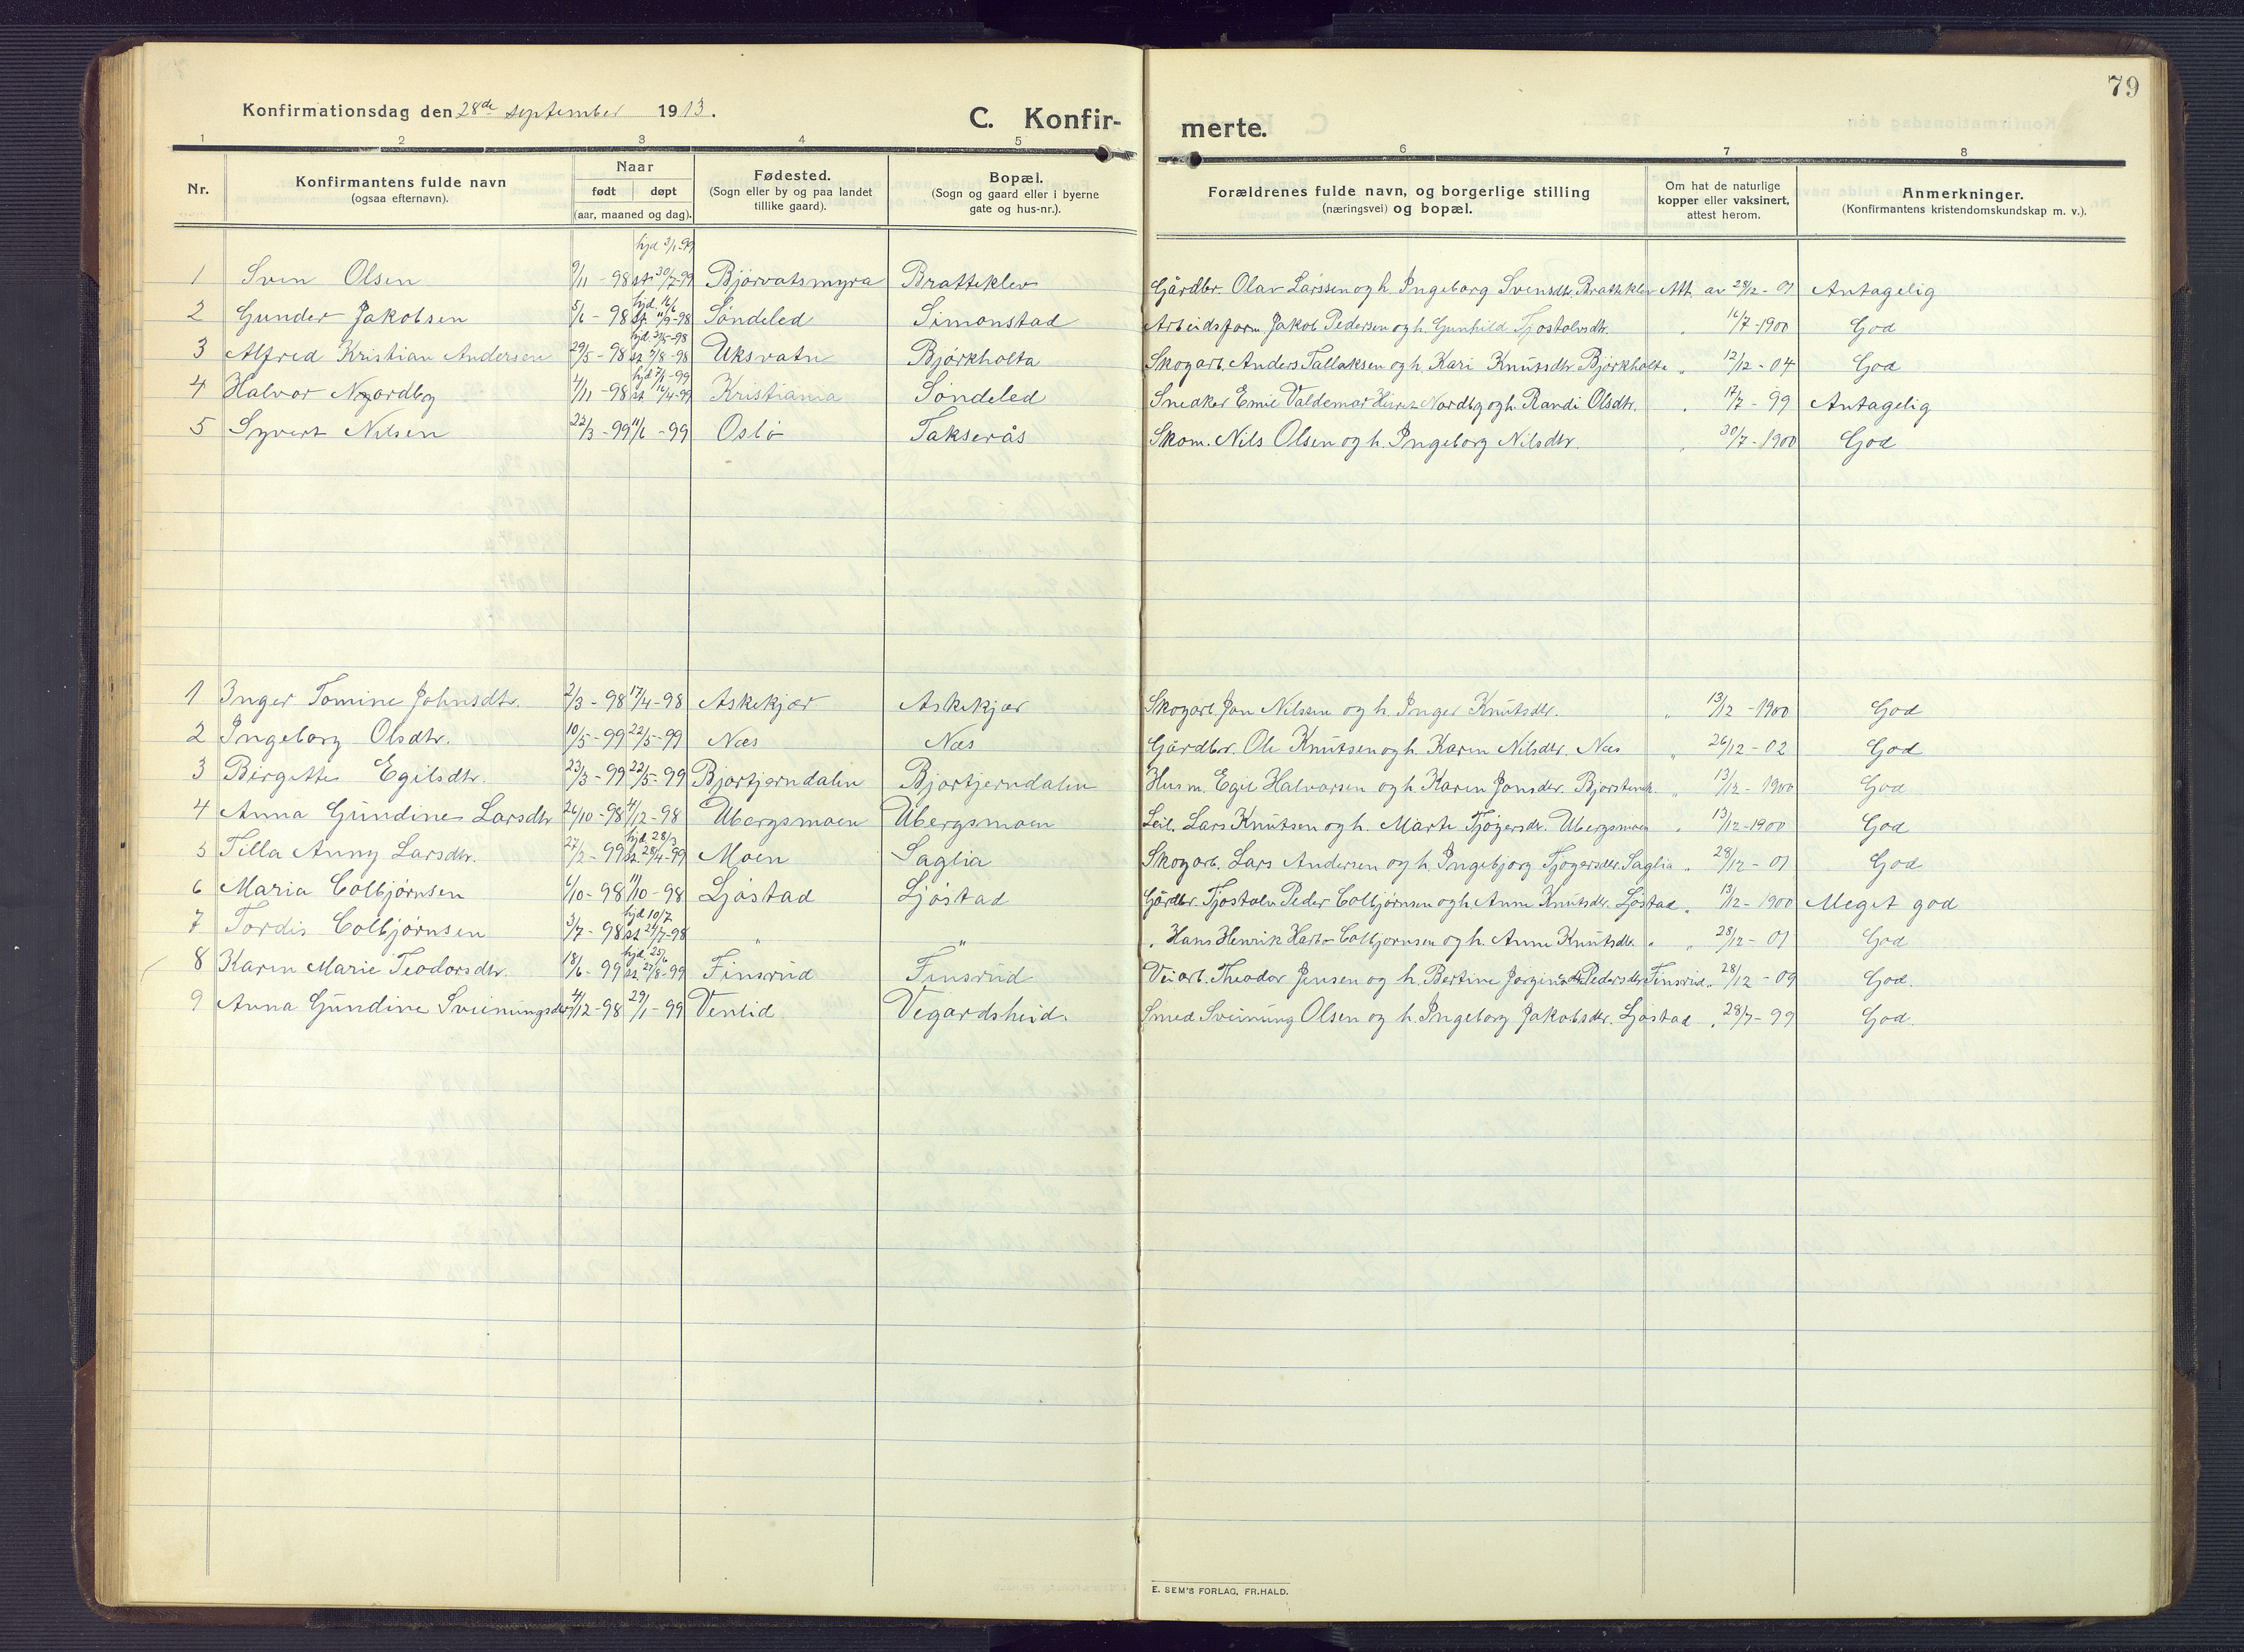 79
Konfirmationsdag den 28de september 1913.
C. Konfir-
merte.
1 2 3 4 5 6 7 8
Nr.
Konfirmantens fulde navn
(ogsaa efternavn).
Naar
født døpt
(aar, maaned og dag).
Fødested.
(Sogn eller by og paa landet
tillike gaard).
Bopæl.
(Sogn og gaard eller i byerne
gate og hus-nr.).
Forældrenes fulde navn, og borgerlige stilling
(næringsvei) og bopæl.
Om hat de naturlige
kopper eller vaksinert,
attest herom.
Anmerkninger.
(Konfirmantens kristendomskundskap m. v.).
hjd 3/1-99
1 Sven Olsen 9/11-98 st. 30/7-99 Bjorvatsmyra Bratteklev Gårdbr. Olav Larssen og h. Ingeborg Svensdtr. Bratteklev Att. av 28/12-01 Antagelig
hjd. 16/6
2 Gunder Jakobsen 5/6-98 st. 11/9-98 Söndeled Simonstad Arbeidsform. Jakob Pedersen og h. Gunhild Tjostolvsdtr. " 16/7-1900 God
hjd. 31/5-98
3 Alfred Kristian Andersen 29/5-98 st. 7/8-98 Uksvatn Björkholta Skogarb. Anders Tallaksen og h. Kari Knutsdtr. Björkholta " 12/12-04 God
hjd 7/1-99
4 Halvor Nordbg 4/11-98 st. 16/4-99 Kristiania Söndeled Snedker Emil Valdemar Nordbg og h. Randi Olsdtr. " 17/7-99 Antagelig
5 Syvert Nilsen 22/3-99 11/6-99 Oslö Takserås Skom. Nils Olsen og h. Ingeborg Nilsdtr. " 30/7-1900 God
1 Inger Tomine Johnsdtr. 2/3-98 17/4-98 Askekjær Askekjær Skogarb. Jon Nilsen og h. Inger Knutsdtr. " 13/12-1900 God
2 Ingeborg Olsdtr. 10/5-99 22/5-99 Næs Næs Gårdbr. Ole Knutsen og h. Karen Nilsdtr. Næs " 26/12-02 God
3 Birgitte Egilsdtr. 23/3-99 22/5-99 Bjortjerndalen Bjortjerndalen Husm. Egil Halvorsen og h. Karen Jonsdtr. " 13/12-1900 God
4 Anna Gundine Larsdtr. 26/10-98 4/12-98 Ubergsmoen Ubergsmoen Leil. Lars Knutsen og h. Marte Tjögersdtr. Ubergsmoen " 13/12-1900 God
hjd. 28/3
5 Tilla Anny Larsdtr. 27/2-99 st. 28/4-99 Moen Saglia Skogarb. Lars Andersen og h. Ingebjorg Tjögersdtr. Saglia " 28/12-01 God
6 Maria Colbjörnsen 6/10-98 11/10-98 Ljöstad Ljöstad Gårdbr. Tjostolv Peder Colbjörnsen og h. Anne Knutsdtr. Ljöstad " 13/12-1900 Meget god
hjd 10/7
7 Tordis Colbjörnsen 3/7-98 st. 24/7-98 " " " Hans Henrik Colbjörnsen og h. Anne Knutsdtr. " " 28/12-01 God
hjd. 25/6
8 Karen Marie Teodorsdtr. 18/6-99 st. 27/8-99 Finsrud Finsrud Veiarb. Theodor Jensen og h. Bertine Pedersdtr. Finsrud " 28/12-09 God.
9 Anna Gundine Sveinungsdtr. 4/12-98 29/1-99 Venlid Vegardsheid. Smed Sveinung Olsen og h. Ingeborg Jakobsdtr. Ljöstad " 28/7-99 God.
E. SEM'S FORLAG, FR.HALD.